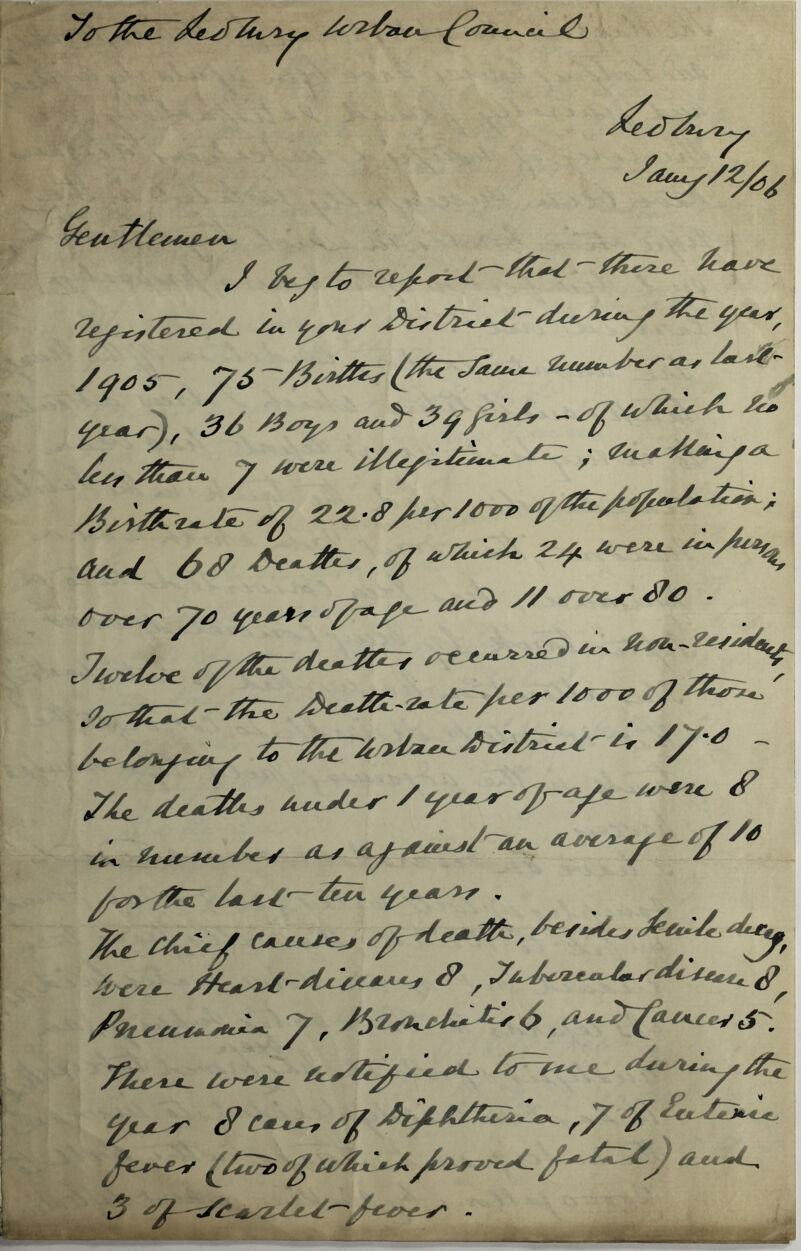 To the Ledbury Urban Council
Ledbury
Jany 12/06
Gentlemen
I beg to report that there have
registered in your District during the year,
1905, 75 Births (the same number as last
year), 36 Boys and 39 Girls - of which no
less than 7 were illegitimate; making a
Birth rate of 22.8 per 1000 of the population;
and 68 Deaths, of which 24 were in persons
over 70 years of age and 11 over 80.
Twelve of the deaths occurred in non-residents,
so that the Death-rate per 1000 of those
belonging to the Urban District is 17.0 -
The deaths under 1 year of age were 8
in number as against an average of 10
for the last ten years.
The chief causes of death, besides senile decay,
were Heart-diseases 8, Tubercular disease 8,
Pneumonia 7, Bronchitis 6, and Cancer 5.
There were notified to me during the
year 8 cases of Diphtheria, 7 of Enteric
fever (two of which proved fatal) and
3 of Scarlet-fever.